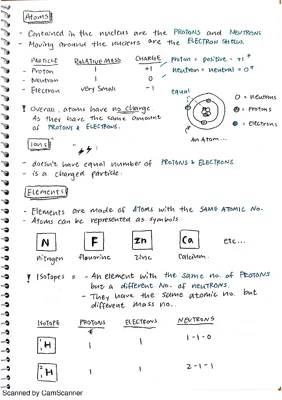 Atoms
- Contained in the nucleus are the PROTONS and NEUTRONS
- Moving around the nucleus are the ELECTRON SHELLS.
PARTICLE RELATIVE MASS CHARGE
- Proton 1 +1
- Neutron 1 0
- Electron very small -1
proton = positive = +1
neutron = neutral = 0
equal
O = neutrons
= protons
= electrons
An Atom...
! Overall, atoms have no charge
As they have the same amount
of PROTONS & ELECTRONS.
Ions
- doesn't have equal number of PROTONS & ELECTRONS
- is a charged particle.
Elements
- Elements are made of ATOMS with the SAME ATOMIC NO.
- Atoms can be represented as symbols.
N F Zn Ca etc...
nitrogen flourine zinc calcium.
! Isotopes = - An element with the same no. of PROTONS
but a different No. of neutrons.
- They have the same atomic no. but
different mass no.
ISOTOPE PROTONS ELECTRONS NEUTRONS
1 1 H 1 1 1-1=0
2 1 H 1 1 2-1=1
Scanned by CamScanner